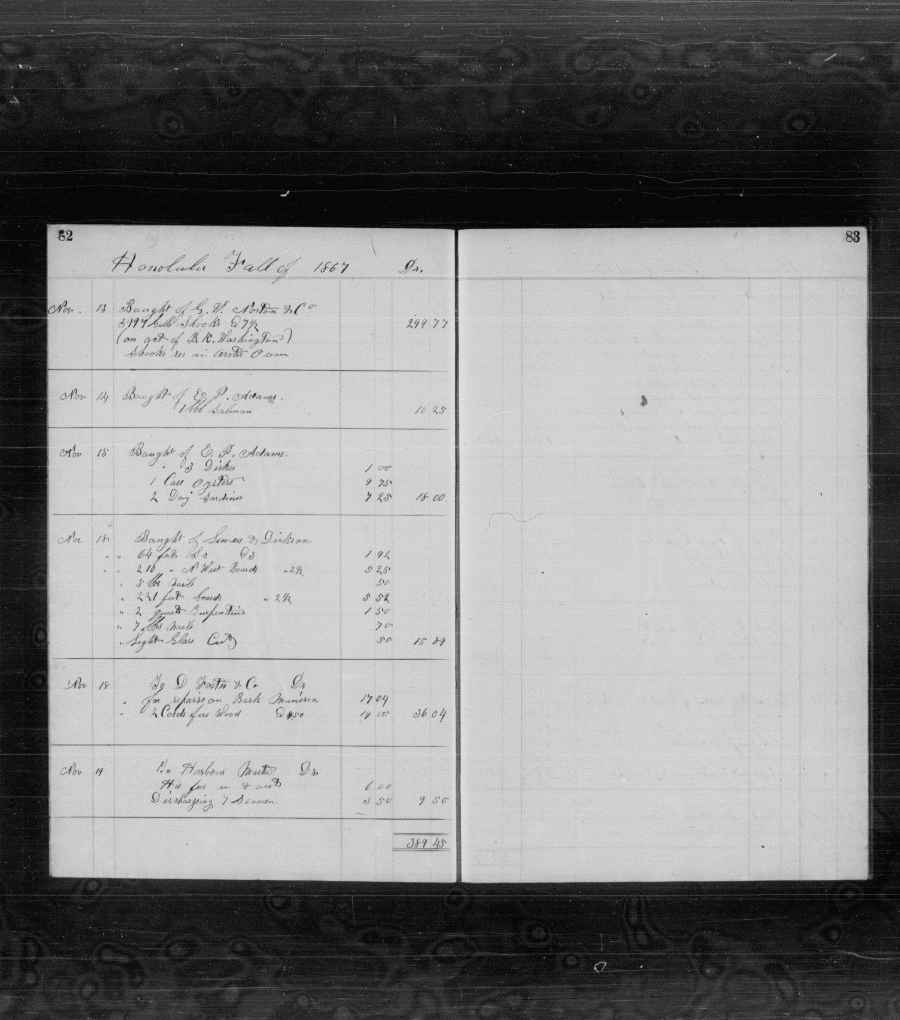 82
Honolulu Fall of 1867 Dr.
Nov. 13 Bought of G. W. Norton & Co
3997 Galls Shooks @ 7½ 299 77
(on act of B. R. Washington)
Shooks rec in Arctic Ocean
Nov 14 Bought of E. P. Adams.
1 bbl Salmon 10 25
Nov 18 Bought of E. P. Adams.
" 3 1 00
1 Case Oysters 9 75
2 Doz Sardines 7 25 18 00
Nov 18 Bought of Lewers & Dickson
" " 64 feet @3 1 92
" " 210 " N West Boards " 2½ 5 25
" 5 lbs nails 50
" 221 feet boards " 2½ 5 52
" 2 quarts Turpentine 1 50
" 7 lbs Nails 70
" Light Glass (Cut) 50 15 89
Nov 18 To D Foster & Co Dr
" for repairs on Bark Minerva 17 04
" 2 Cords fire Wood @ 9 50 19 00 36 04
Nov 19 To Harbour Master Dr.
His fees in & out 6 00
Discharging 7 Seamen 3 50 9 50
389 45
83